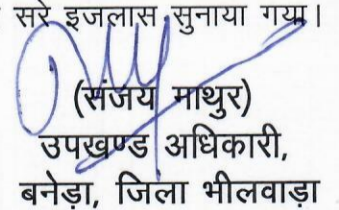 सरे इजलास सुनाया गया।
(संजय माथुर)
उपखण्ड अधिकारी,
बनेड़ा, जिला भीलवाड़ा